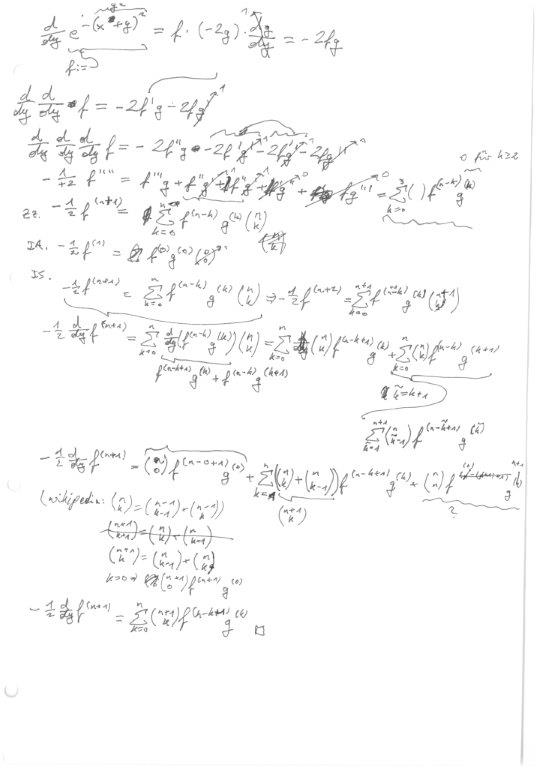 d/dy e^{-(x+y)^2} = f · (-2g) · dg/dy = -2fg
f :=
d/dy d/dy f = -2f'g - 2fg'
d/dy d/dy d/dy f = -2f''g - 2f'g' - 2f'g' - 2fg''
0 für k≥2
f'''' = f'''g + f''g' + f''g' + = Σ_{k=0}^{3} ( ) f^{(n-k)} g^{(k)}
ZZ. -1/2 f^{(n+1)} = Σ_{k=0}^{n} f^{(n-k)} g^{(k)} (n k)
IA. -1/2 f^{(1)} = f^{(0)} g^{(0)} (0 0)
IS.
-1/2 f^{(n+1)} = Σ_{k=0}^{n} f^{(n-k)} g^{(k)} (n k) ⇒ -1/2 f^{(n+2)} = Σ_{k=0}^{n+1} g^{(k)} (n+1 k)
-1/2 d/dy f^{(n+1)} = Σ_{k=0}^{n} d/dy (f^{(n-k)} g^{(k)}) (n k) = Σ_{k=0}^{n} (n k) f^{(n-k+1)} g^{(k)} + Σ_{k=0}^{n} (n k) f^{(n-k)} g^{(k+1)}
f^{(n-k+1)} g^{(k)} + f^{(n-k)} g^{(k+1)}
k̃ = k+1
Σ_{k̃=1}^{n+1} (n k̃-1) f^{(n-k̃+1)} g^{(k̃)}
-1/2 d/dy f^{(n+1)} = (n 0) f^{(n-0+1)} g^{(0)} + Σ_{k=1}^{n} ((n k) + (n k-1)) f^{(n-k+1)} g^{(k)} + (n n) f^{(0)} g^{(n+1)}
(n+1 k)
?
(wikipedia: (n k) = (n-1 k-1) + (n-1 k))
(n+1 k+1) = (n k) + (n k+1)
(n+1 k) = (n k-1) + (n k)
k=0 ⇒ (n+1 0) f^{(n+1)} g^{(0)}
-1/2 d/dy f^{(n+1)} = Σ_{k=0}^{n} (n+1 k) f^{(n-k+1)} g^{(k)} □